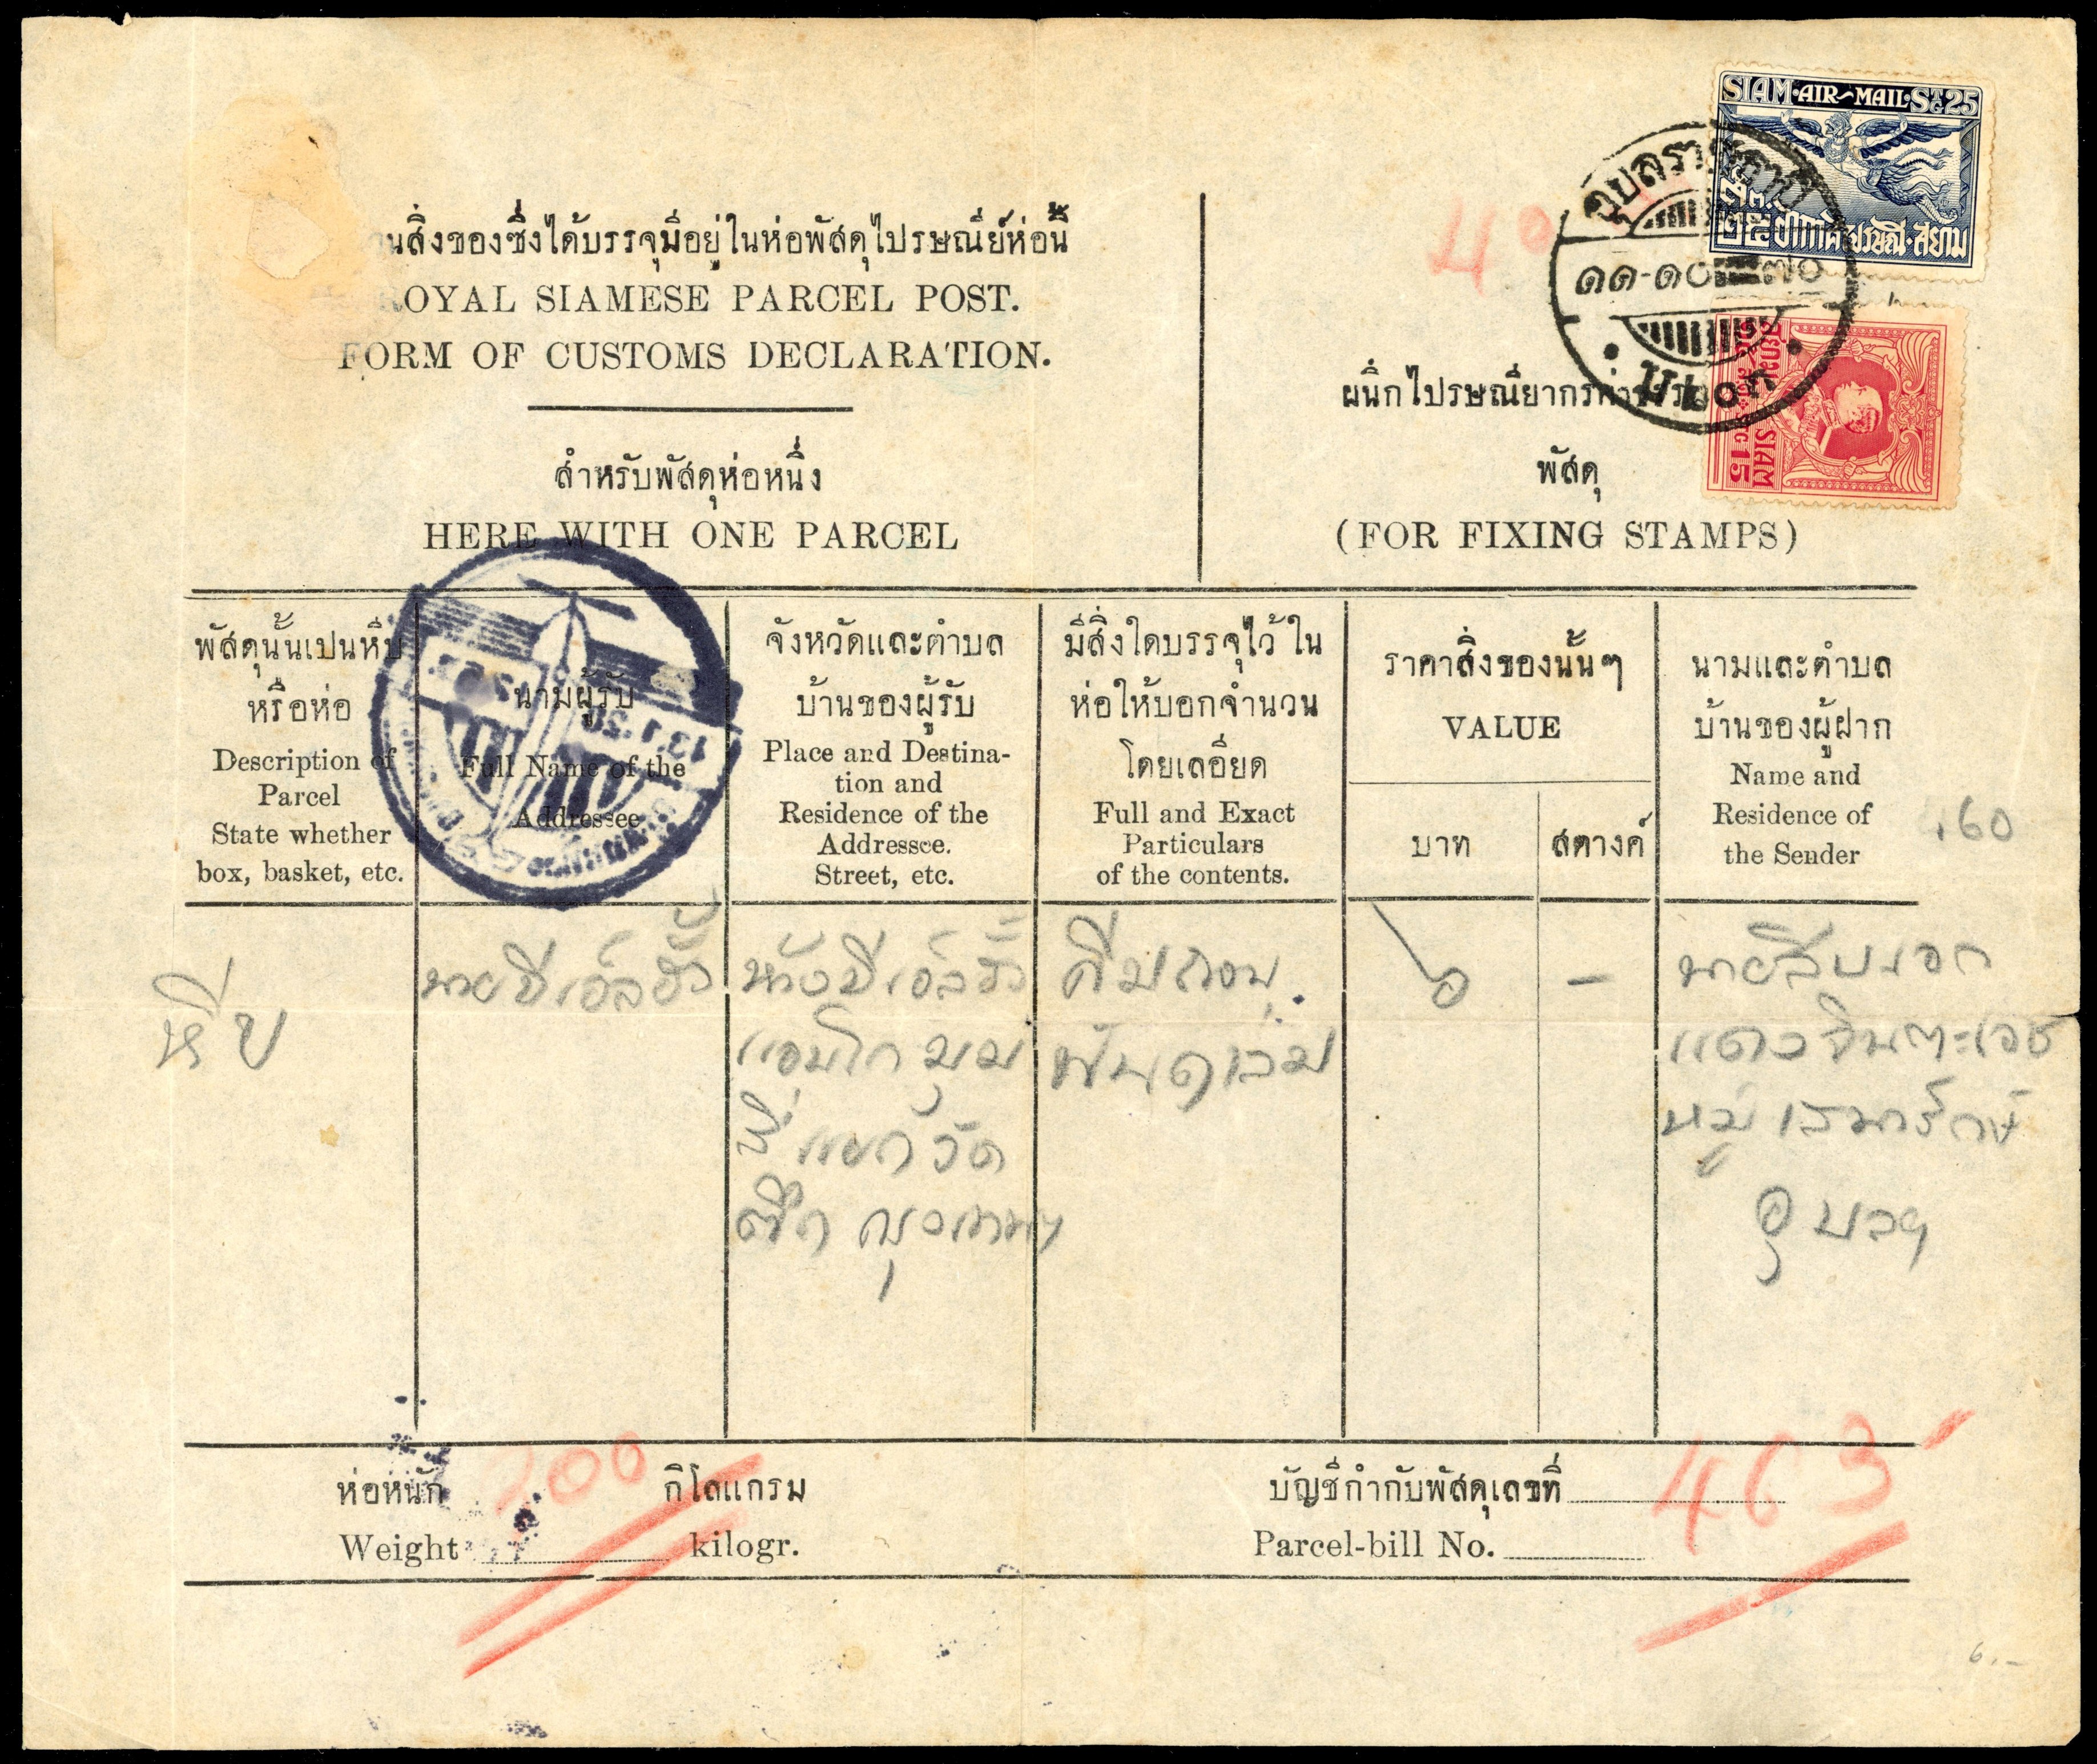 นสิ่งของซึ่งได้บรรจุมีอยู่ในห่อพัสดุไปรษณีย์ห่อนี้
ROYAL SIAMESE PARCEL POST.
FORM OF CUSTOMS DECLARATION.
สำหรับพัสดุห่อหนึ่ง
HERE WITH ONE PARCEL
SIAM·AIR-MAIL·STG 25
40
อุบลราชธานี
๑๑-๑๐ ๗๐
Ubon
SIAM
15
ผนึกไปรษณียากร
พัสดุ
(FOR FIXING STAMPS)
พัสดุนั้นเปนหีบ
หรือห่อ
Description of
Parcel
State whether
box, basket, etc.
นามผู้รับ
Full Name of the
Addressee
13.1.
จังหวัดและตำบล
บ้านของผู้รับ
Place and Destina-
tion and
Residence of the
Addressee.
Street, etc.
มีสิ่งใดบรรจุไว้ใน
ห่อให้บอกจำนวน
โดยเลอียด
Full and Exact
Particulars
of the contents.
ราคาสิ่งของนั้นๆ
VALUE
บาท
สตางค์
นามและตำบล
บ้านของผู้ฝาก
Name and
Residence of
the Sender
.60
หีบ
นายบีเอ็ลฮั้ว
ห้างบีเอ็ลฮั้ว
แอนโก มุม
สี่แยกวัด
ตึก กรุงเทพฯ
คีมถอน
ฟันดเล่ม
๖
-
นายสิบเอก
แดง จินตะเวช
หมู่ เสนารักษ์
อุบลฯ
ห่อหนัก 200 กิโลแกรม
Weight kilogr.
บัญชีกำกับพัสดุเลขที่ 463
Parcel-bill No.
6.-